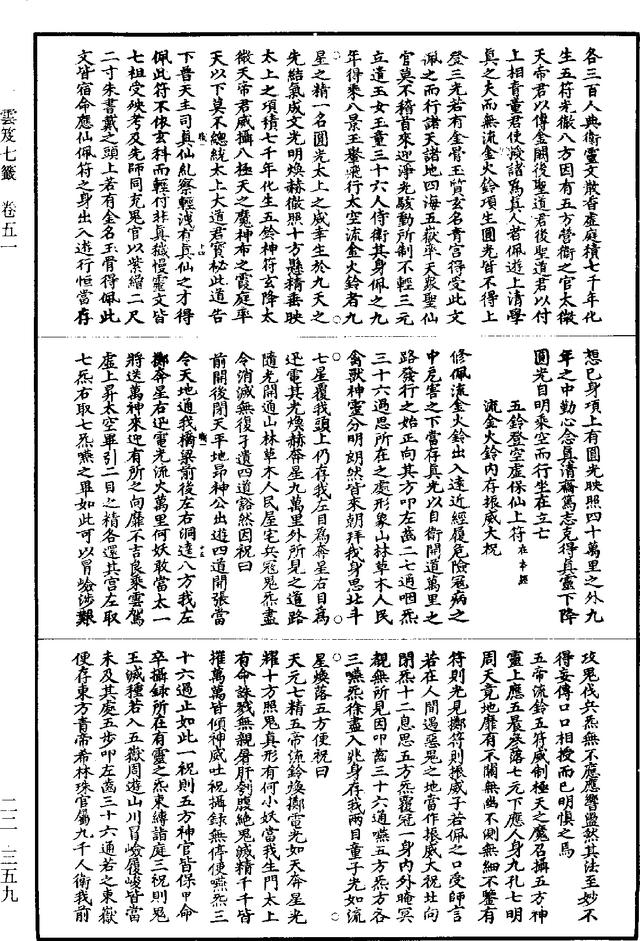 各三百人典衛靈文散香虛庭積七千年化
生五符光徹八方因有五方營衛之官太微
天帝君以傳金闕後聖道君後聖道君以付
上相青童君使授諸為真人者佩遊上清學
真之夫而無流金火鈴項生圓光皆不得上
登三光若有金骨玉質玄名青宮得受此文
佩之而行諸天諸地四海五嶽率天眾聖仙
官莫不稽首來迎淨光駭動所制不輕三元
立遣玉女玉童三十六人侍衛其身佩之九
年得乘八景玉轝飛行太空流金火鈴者九
星之精一名圓光太上之威章生於九天之
先結氣成文光明煥赫徹照十方懸精垂映
太上之項積七千年化生五鈴神符玄降太
微天帝君威攝八極天之魔神布之霞庭率
天以下莫不總統太上大道君寶秘此道告
下普天主司真仙糺察輕洩有真仙之才得
佩此符不依玄科而輕付非真穢慢靈文皆
七祖受殃考及先師同充鬼官以紫繒二尺
二寸朱書戴之頭上若有金名玉骨得佩此
文皆宿命應仙佩符之身出入遊行恒當存
想己身項上有圓光映照四十萬里之外九
年之中勤心念真清齋篤志克得真靈下降
圓光自明乘空而行坐在立亡
五鈴登空虛保仙上符在本經
流金火鈴內存振威大祝
修佩流金火鈴出入遠近經履危險冠病之
中危害之下當存真光以自衛開道萬里之
路發行之始正向其方叩左齒二七通咽炁
三十六過思所在之處形象山林草木人民
禽獸神靈分明朗然皆來朝拜我身思北斗
七星覆我頭上仍存我左目為奔星右目為
迅電其光煥赫奔星九萬里外所見之道路
隨光開通山林草木人民屋宅兵冠鬼炁盡
令消滅無復孑遺四道豁然因祝曰
前開後閉天平地昂神公出遊四道開張當
令天地通我橋梁前後左右洞達八方我左
擲奔星右迅電光流火萬里何妖敢當太一
將送萬神來迎有所之向靡不吉良乘雲駕
虛上昇太空畢引二目之精各還其宮左取
七炁右取七炁嚥之畢如此可以冒嶮涉艱
攻鬼伐兵炁無不應應響盪然其法至妙不
得妄傳口口相授而已明慎之焉
五帝流鈴五符威制極天之魔召攝五方神
靈上應五晨參落七元下應人身九孔七明
周天竟地靡有不關無幽不測無細不鑒有
符則光見擲符則振威子若佩之口受師言
若在人間過惡鬼之地當作振威大祝北向
閉炁十二息思五方炁覆冠一身內外晻冥
覩無所見因叩齒三十六通嚥五方炁方各
三嚥炁徐盡入兆身存我兩目童子光如流
星煥落五方便祝曰
天元七精五帝流鈴煥擲電光如天奔星光
耀十方照鬼真形有何小妖當我生門太上
有命誅戮無親屠肝刳腹絕鬼滅精千千皆
摧萬萬皆傾神威吐祝攝錄無停便嚥炁三
十六過止如此一祝則五方神官皆保甲命
卒攝錄所在有靈之炁束縛詣庭三祝則鬼
王滅種若入五嶽周遊山川冒嶮履峻皆當
未及其處五步叩左齒三十六通若之東嶽
便存東方青帝希林珠官屬九千人衛我前
雲笈七籤 卷五一
二二—三五九